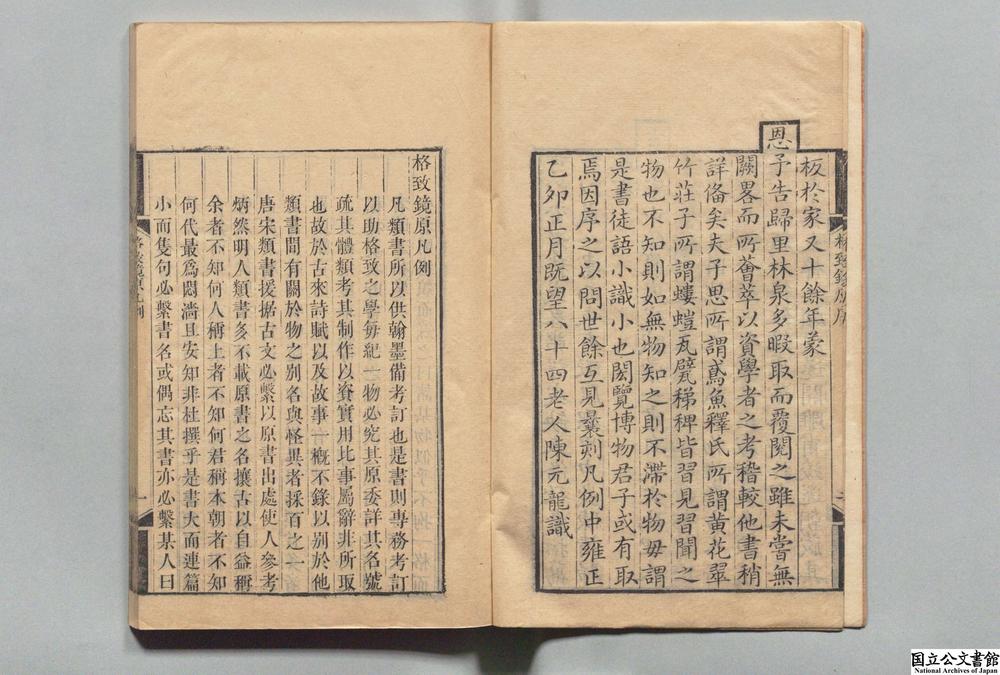 板於家又十餘年蒙
恩予告歸里林泉多暇取而覆閱之雖未嘗無
闕畧而所薈萃以資學者之考稽較他書稍
詳俻矣夫子思所謂鳶魚釋氏所謂黃花翠
竹莊子所謂螻螘瓦甓稊稗皆習見習聞之
物也不知則如無物知之則不滯於物毋謂
是書徒語小識小也閎覽博物君子或有取
焉因序之以問世餘互見曩刻凡例中雍正
乙卯正月既望八十四老人陳元龍識
格致鏡原凡例
凡類書所以供翰墨備考訂也是書則專務考訂
以助格致之學每紀一物必究其原委詳其名號
疏其體類考其制作以資實用比事屬辭非所取
也故於古來詩賦以及故事一槪不錄以别於他
類書間有關於物之别名與怪異者採百之一
唐宋類書援据古文必繫以原書出處使人參考
炳然明人類書多不載原書之名攘古以自益稱
余者不知何人稱上者不知何君稱本朝者不知
何代最爲悶濇且安知非杜撰乎是書大而連篇
小而隻句必繫書名或偶忘其書亦必繫某人曰
一
国立公文書館
National Archives of Japan